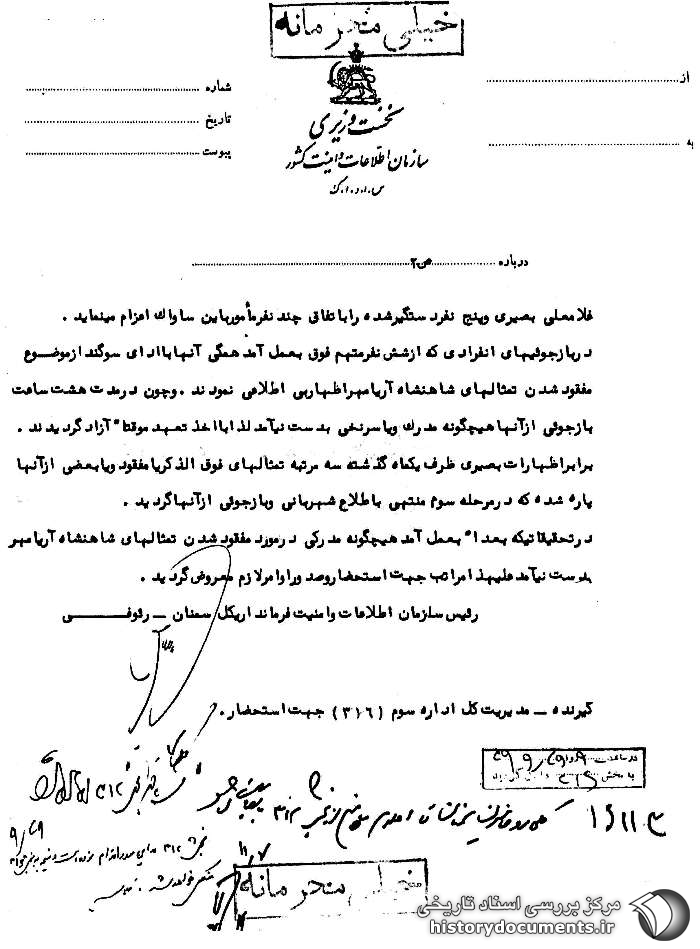 خیلی محرمانه
از
شماره
نخست وزیری
تاریخ
به
سازمان اطلاعات و امنیت کشور
پیوست
س.ا.و.ا.ک
درباره ص۲
غلامعلی بصیری وپنج نفردستگیرشده راباتفاق چند نفرمأمورباین ساواك اعزام مینماید .
دربازجوئیهای انفرادی که ازشش نفرمتهم فوق بعمل آمد همگی آنهاباادای سوگند ازموضوع
مفقود شدن تمثالهای شاهنشاه آریامهراظهاربی اطلاعی نمودند . وچون درمدت هشت ساعت
بازجوئی ازآنها هیچگونه مدرك ویاسرنخی بدست نیآمد لذابااخذ تعهد موقتا" آزاد گردیدند .
برابراظهارات بصیری ظرف یکماه گذشته سه مرتبه تمثالهای فوق الذکریامفقود ویابعضی ازآنها
پاره شده که درمرحله سوم منتهی باطلاع شهربانی وبازجوئی ازآنهاگردید .
درتحقیقاتیکه بعدا" بعمل آمد هیچگونه مدرکی درمورد مفقود شدن تمثالهای شاهنشاه آریامهر
بدست نیآمد علیهذا مراتب جهت استحضاروصدوراوامرلازم معروض گردید .
رئیس سازمان اطلاعات وامنیت فرمانداریکل سمنان ـ رئوفی
گیرنده ـ مدیریت کل اداره سوم (۳۱۶) جهت استحضار.
خیلی محرمانه
مرکز بررسی اسناد تاریخی
historydocuments.ir